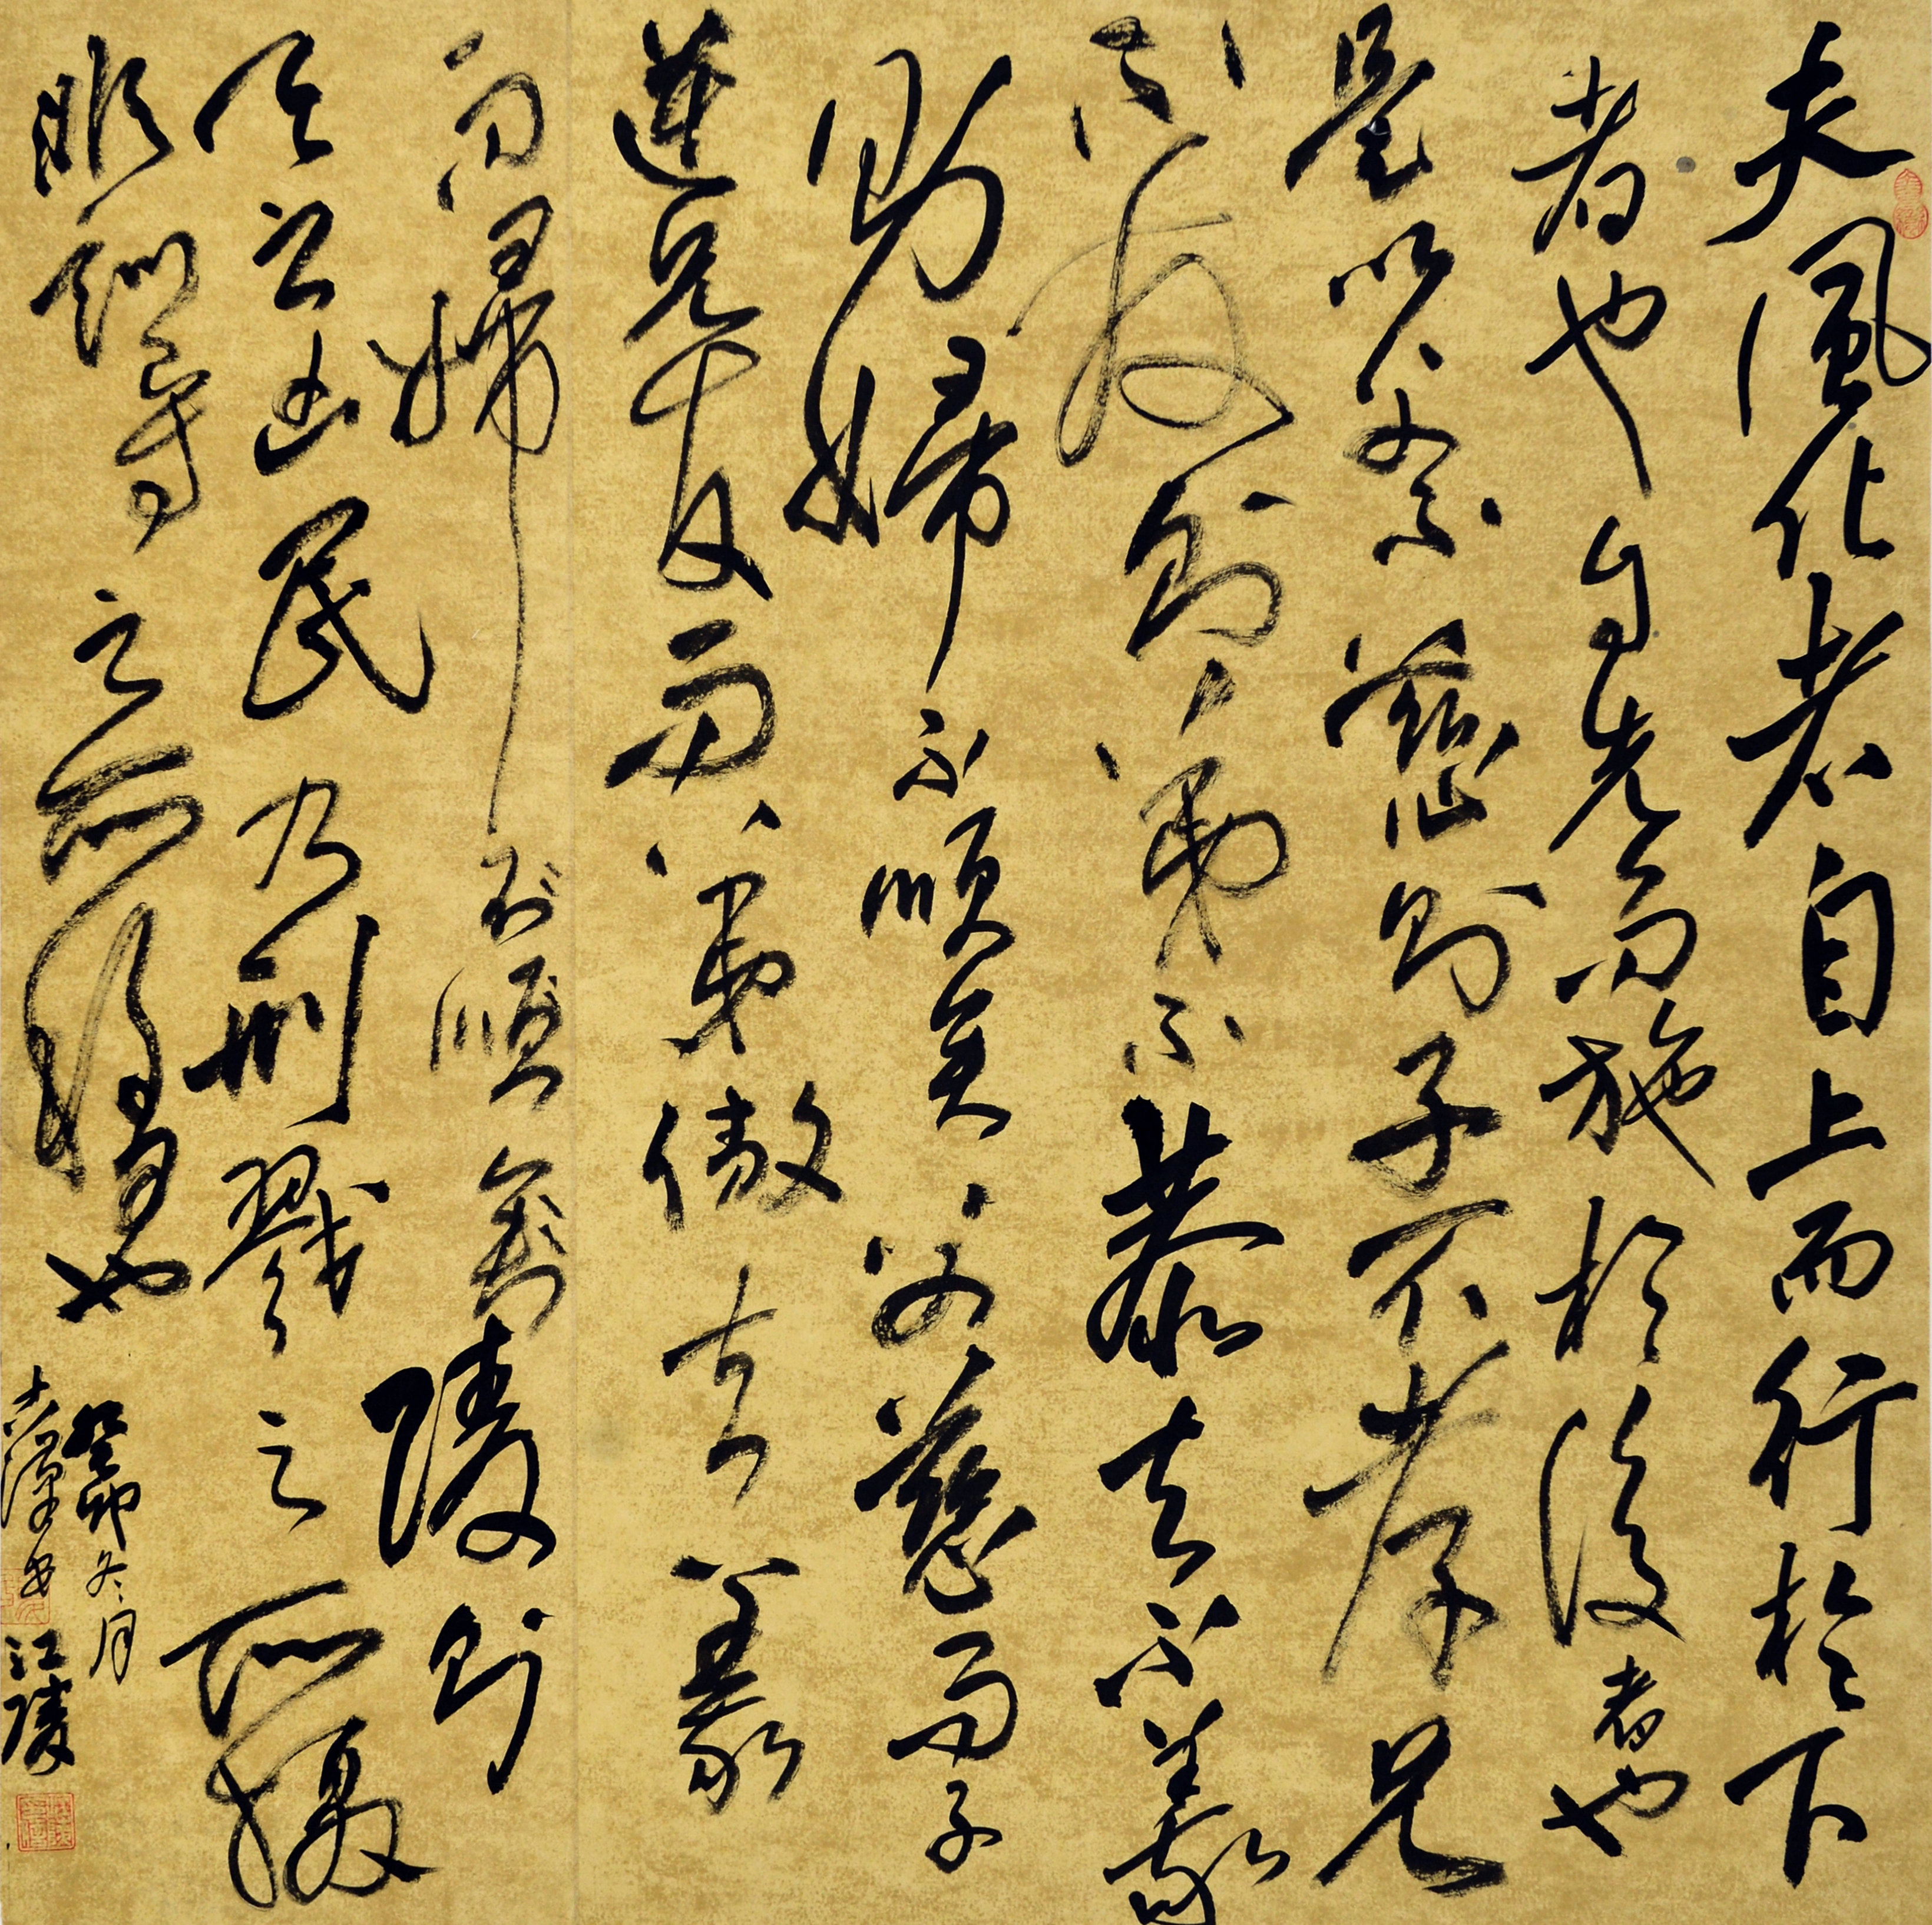 夫風化者自上而行於下
者也自先而施於後者也
是以父不慈則子不孝兄
不友則弟不恭夫不義
則婦不順矣父慈而子
逆兄友而弟傲夫義
而婦不順陵則
天之凶民乃刑戮之所攝
非訓導之所移也
癸卯冬月
書江陵